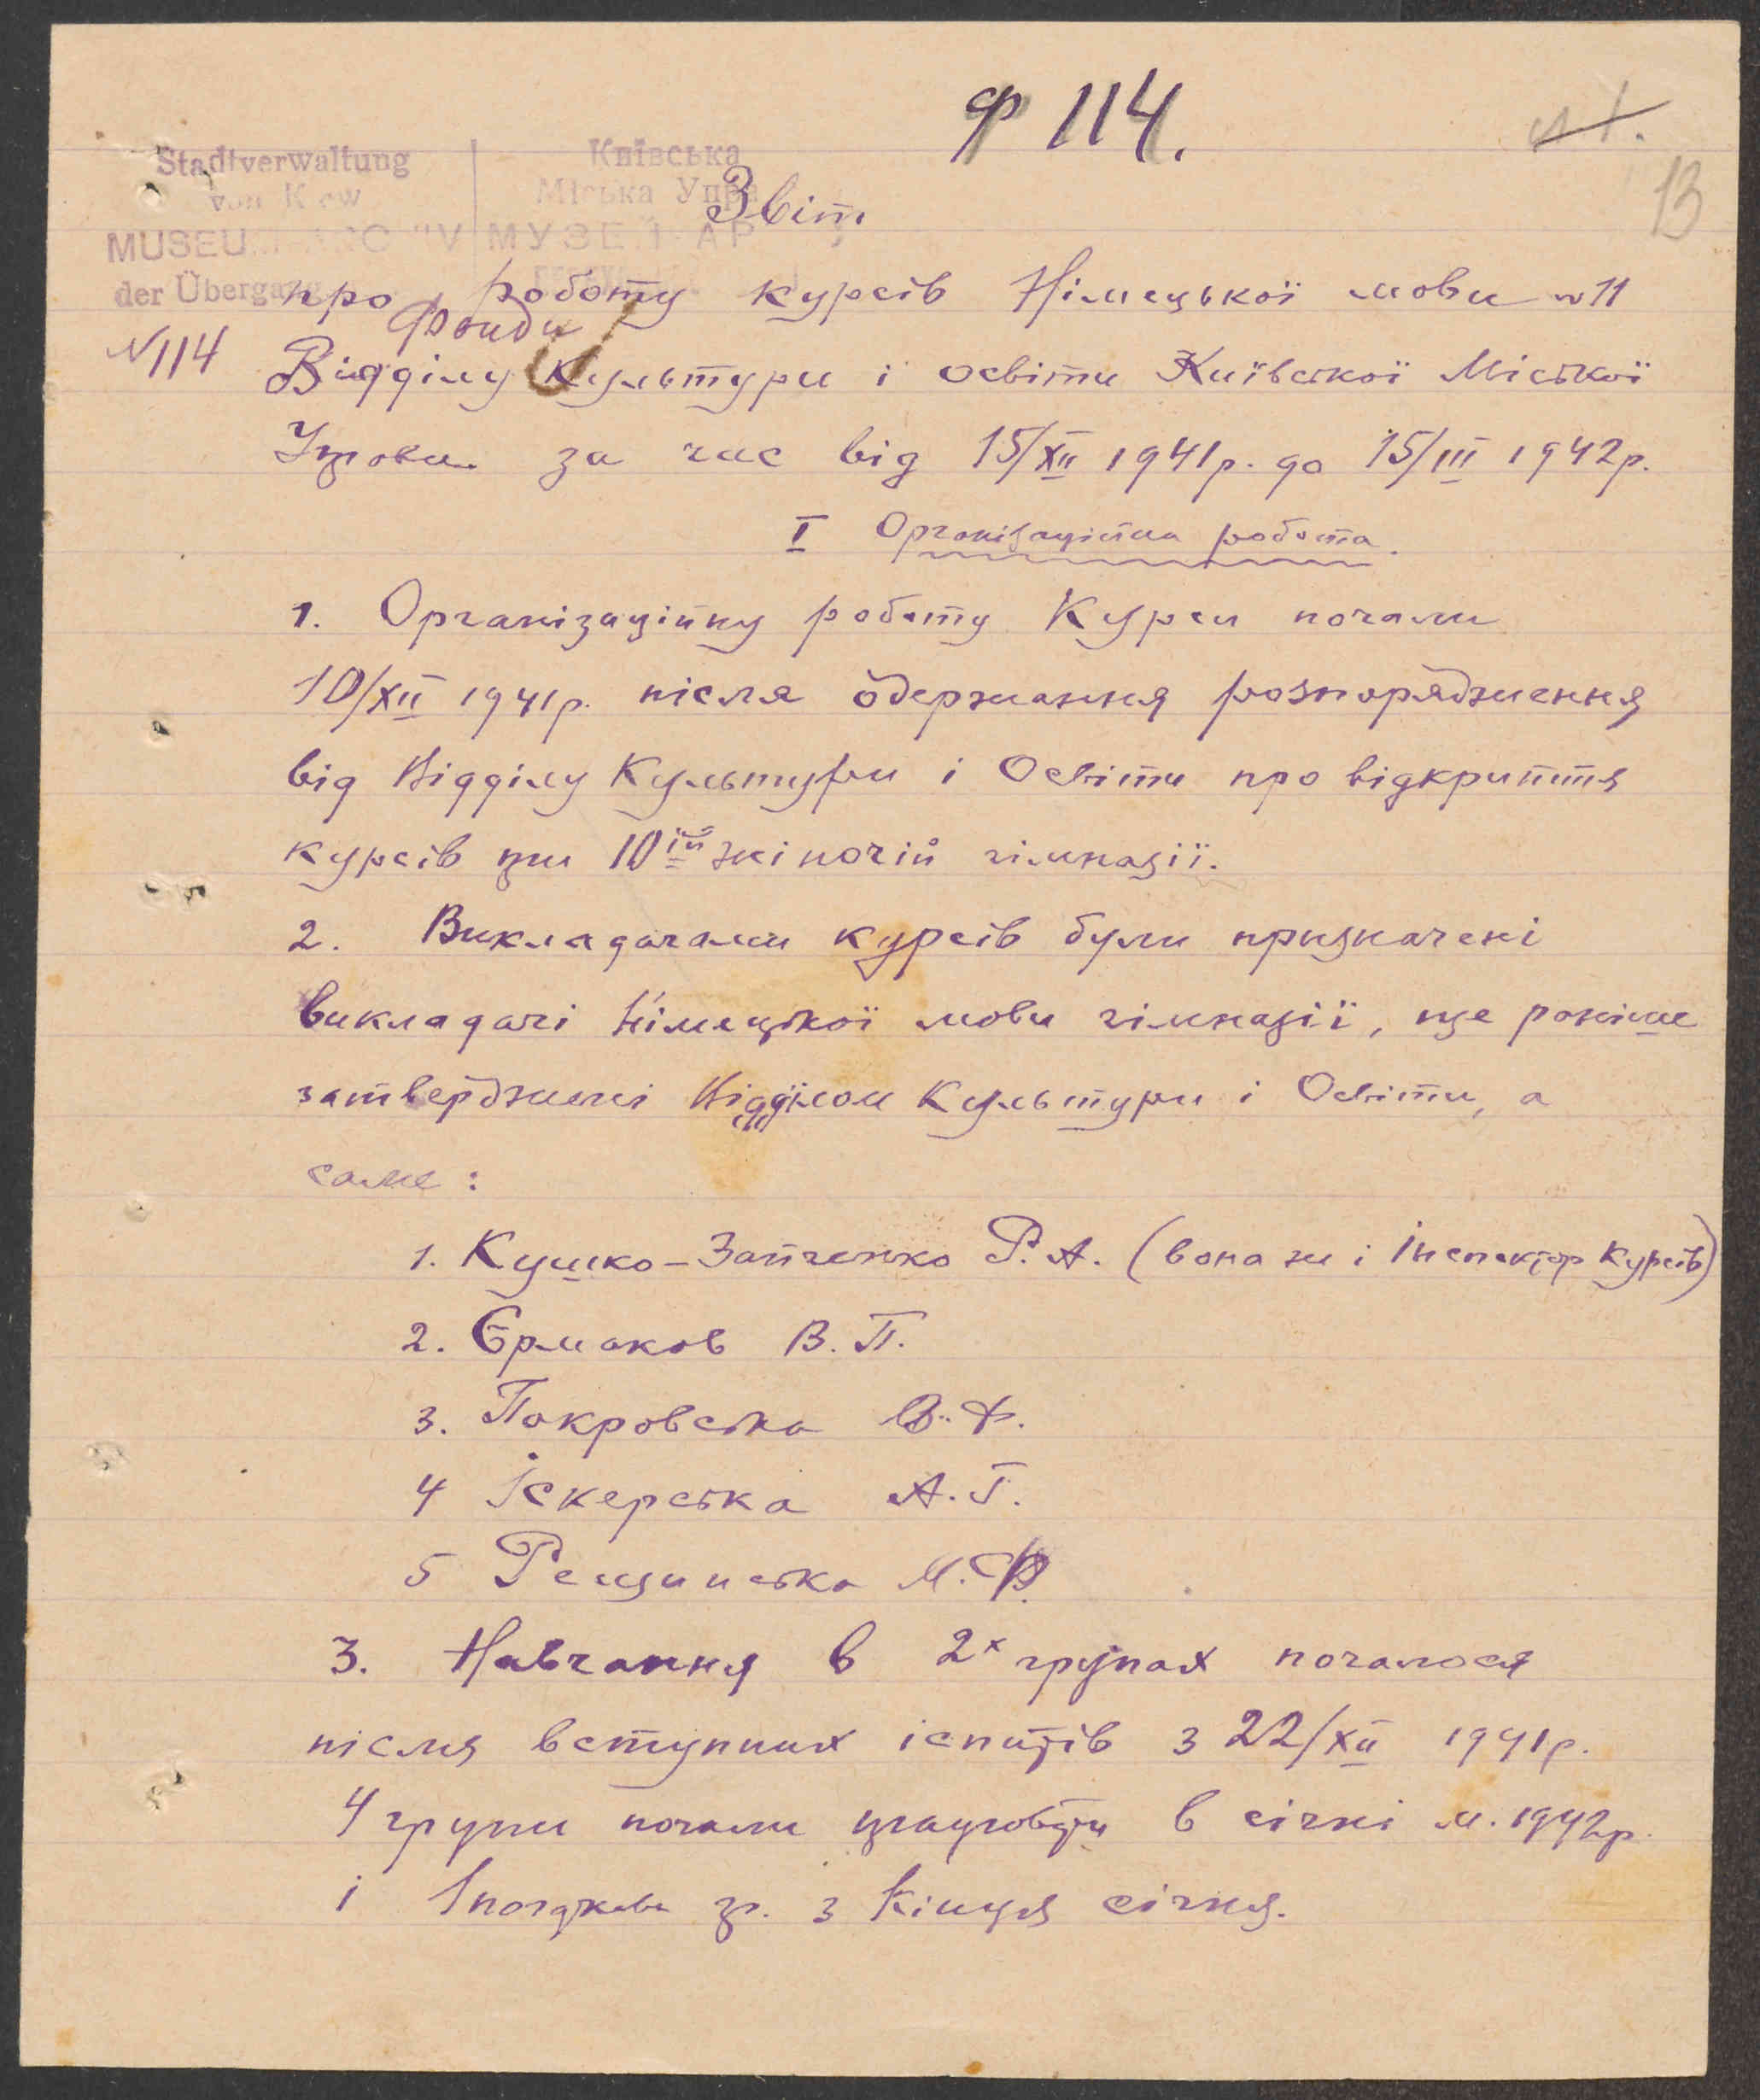 ф 114.
л 1.
13
Stadtverwaltung
von Kiew
MUSEUM ARCHIV
der Übergang
Київська
Міська Упра
МУЗЕЙ АР
Звіт
про роботу курсів Німецької мови №11
фонди
№114
Відділу Культури і освіти Київської Міської
Управи за час від 15/XII 1941р. до 15/III 1942р.
I Організаційна робота.
1. Організаційну роботу Курси почали
10/XII 1941р. після одержання розпорядження
від Відділу Культури і Освіти про відкриття
курсів при 10ій жіночій гімназії.
2. Викладачами курсів були призначені
викладачі Німецької мови гімназії, ще раніше
затверджені Відділом Культури і Освіти, а
саме:
1. Кушко-Зайченко Р.А. (вона ж і інспектор Курсів)
2. Єрмаков В.П.
3. Покровська В.Ф.
4 Іскерська А.Г.
5 Рещинська М.Ф.
3. Навчання в 2х групах почалося
після вступних іспитів з 22/XII 1941р.
4 групи почали працювати в січні м. 1942р.
і 1 почдкова гр. з кінця січня.